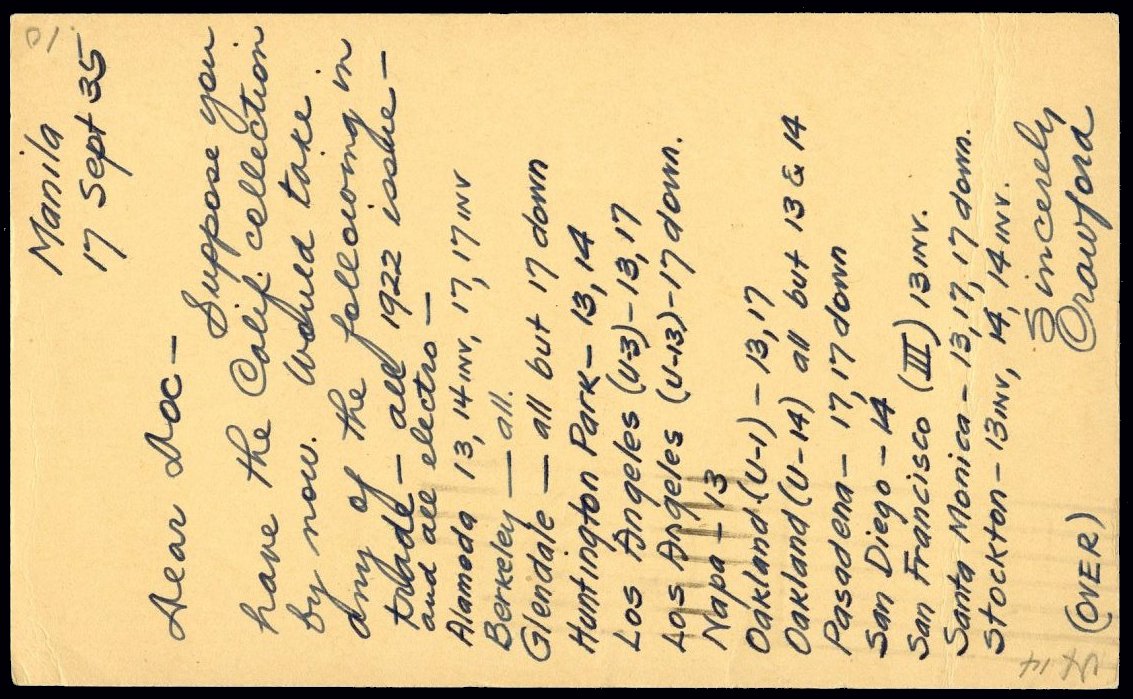 Manila
17 Sept 35
Dear Doc —
Suppose you
have the Calif. collection
by now. Would take
any of the following in
trade — all 1922 issue —
and all electro —
Alameda 13, 14 INV, 17, 17 INV
Berkeley — all.
Glendale — all but 17 down
Huntington Park — 13, 14
Los Angeles (U-3) — 13, 17
Los Angeles (U-13) — 17 down.
Napa — 13
Oakland (U-1) — 13, 17
Oakland (U-14) all but 13 & 14
Pasadena — 17, 17 down
San Diego — 14
San Francisco (III) 13 INV.
Santa Monica — 13, 17, 17 down.
Stockton — 13 INV, 14, 14 INV.
Sincerely
Crawford
(OVER)